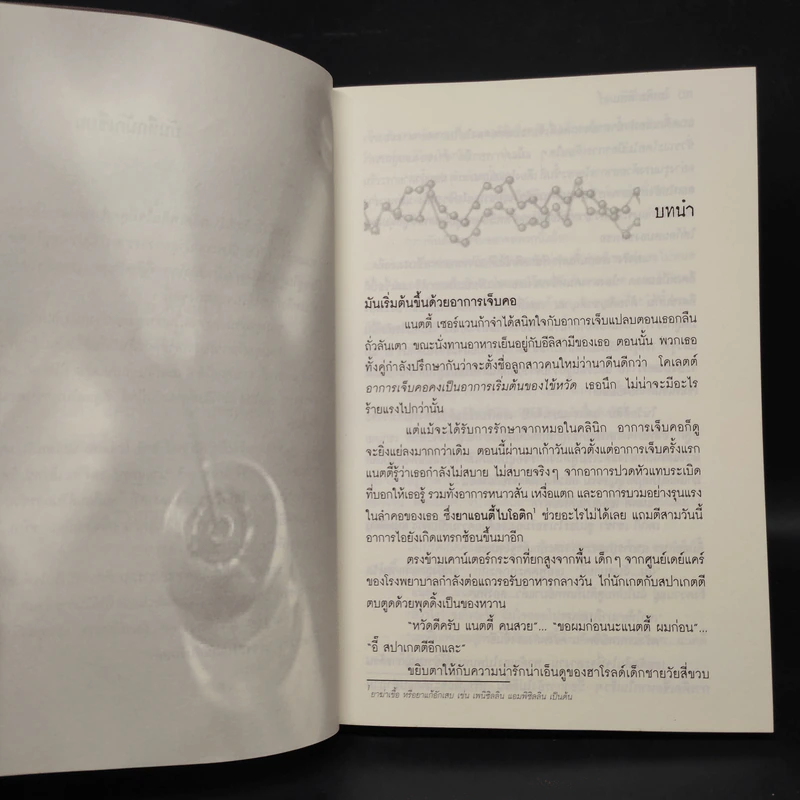 บทนำ
มันเริ่มต้นขึ้นด้วยอาการเจ็บคอ
แนตตี้ เซอร์แวนก้าจำได้สนิทใจกับอาการเจ็บแปลบตอนเธอกลืน
ถั่วลันเตา ขณะนั่งทานอาหารเย็นอยู่กับอีลิสามีของเธอ ตอนนั้น พวกเธอ
ทั้งคู่กำลังปรึกษากันว่าจะตั้งชื่อลูกสาวคนใหม่ว่านาดีนดีกว่า โคเลตต์
อาการเจ็บคอคงเป็นอาการเริ่มต้นของไข้หวัด เธอนึก ไม่น่าจะมีอะไร
ร้ายแรงไปกว่านั้น
แต่แม้จะได้รับการรักษาจากหมอในคลินิก อาการเจ็บคอก็ดู
จะยิ่งแย่ลงมากกว่าเดิม ตอนนี้ผ่านมาเก้าวันแล้วตั้งแต่อาการเจ็บครั้งแรก
แนตตี้รู้ว่าเธอกำลังไม่สบาย ไม่สบายจริงๆ จากอาการปวดหัวแทบระเบิด
ที่บอกให้เธอรู้ รวมทั้งอาการหนาวสั่น เหงื่อแตก และอาการบวมอย่างรุนแรง
ในลำคอของเธอ ซึ่งยาแอนตี้ไบโอติก¹ ช่วยอะไรไม่ได้เลย แถมตีสามวันนี้
อาการไอยังเกิดแทรกซ้อนขึ้นมาอีก
ตรงข้ามเคาน์เตอร์กระจกที่ยกสูงจากพื้น เด็กๆ จากศูนย์เดย์แคร์
ของโรงพยาบาลกำลังต่อแถวรอรับอาหารกลางวัน ไก่นักเกตกับสปาเกตตี
ตบตูดด้วยพุดดิ้งเป็นของหวาน
“หวัดดีครับ แนตตี้ คนสวย”... “ขอผมก่อนนะแนตตี้ ผมก่อน”...
“อี๊ สปาเกตตีอีกและ”
ขยิบตาให้กับความน่ารักน่าเอ็นดูของฮาโรลด์เด็กชายวัยสี่ขวบ
¹ ยาฆ่าเชื้อ หรือยาแก้อักเสบ เช่น เพนิซิลลิน แอมพิซิลลิน เป็นต้น